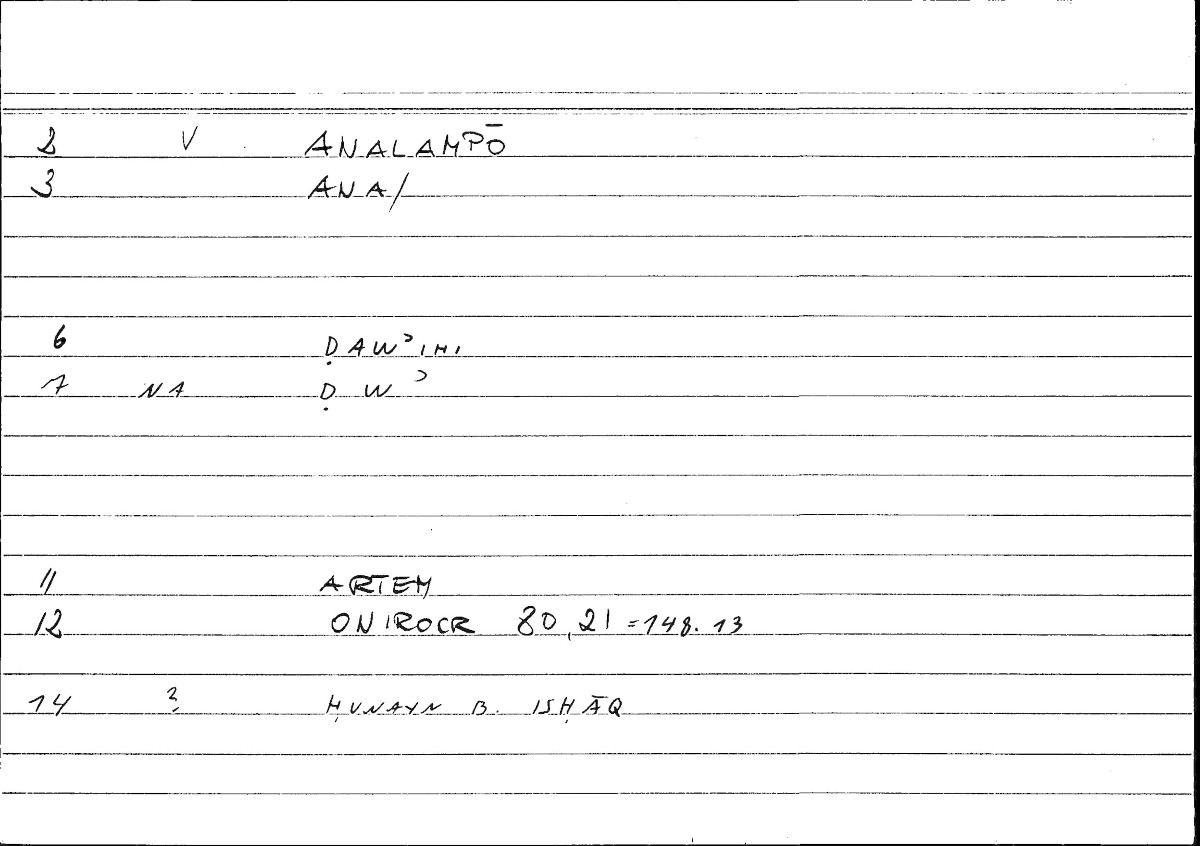 2 V ANALAMPŌ
3 ANA/
6 ḌAWʾIHI
7 NA Ḍ W ʾ
11 ARTEM
12 ONIROCR 80,21=148.13
14 ? ḤUNAYN B. ISḤĀQ